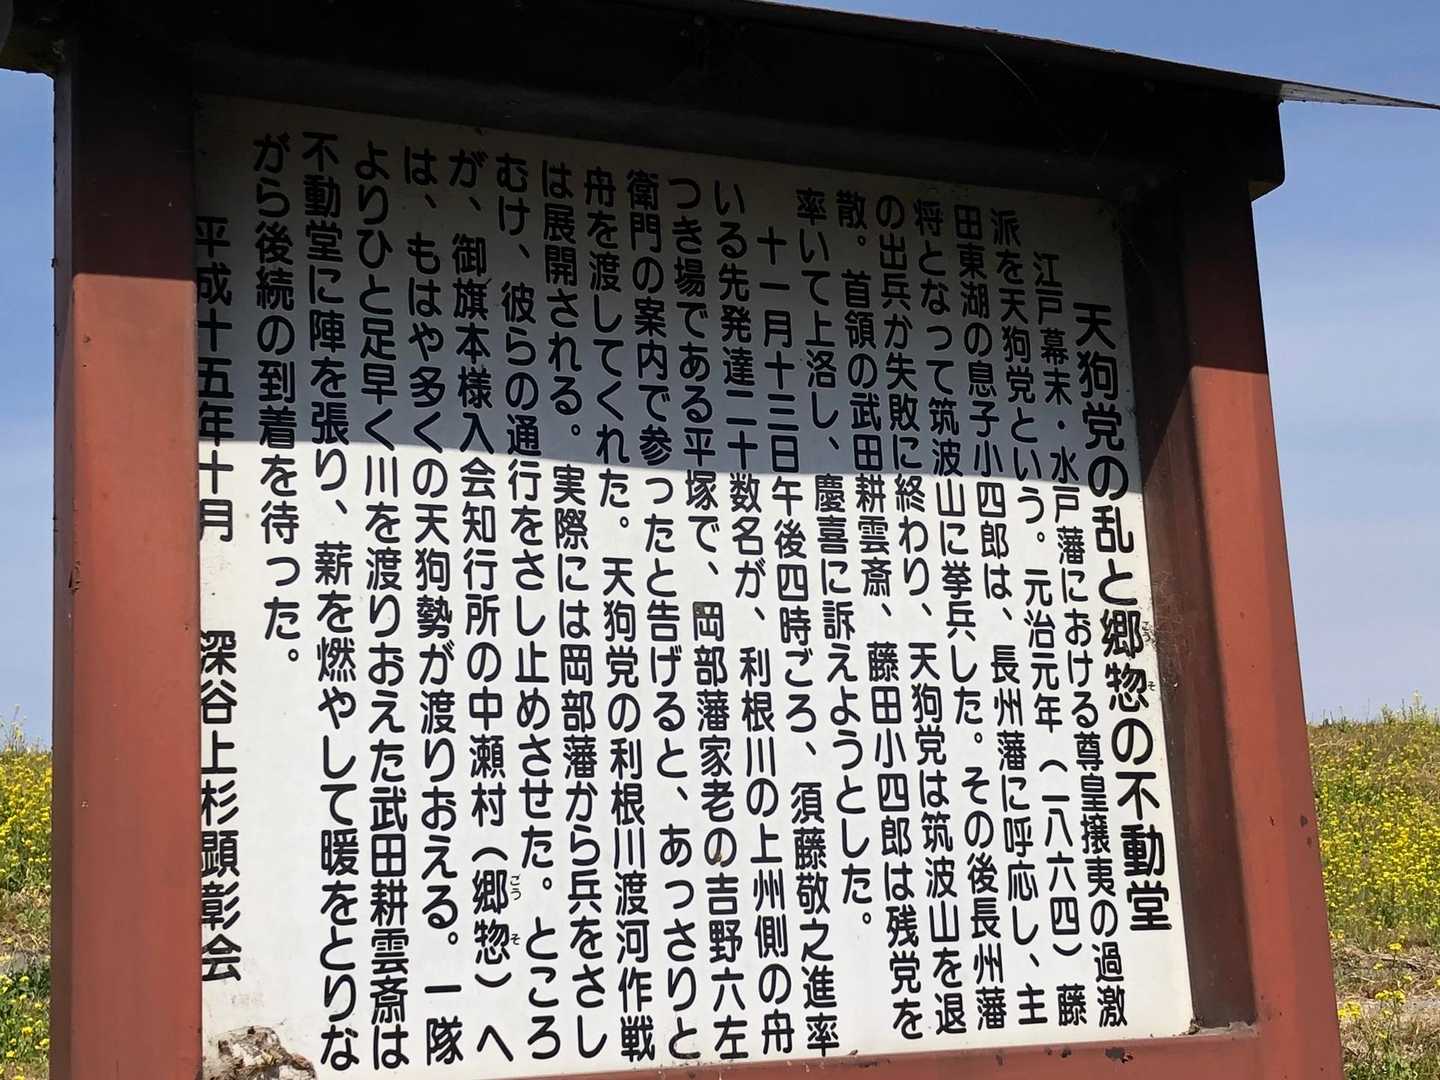 天狗党の乱と郷惣の不動堂
ごう そ
江戸幕末・水戸藩における尊皇攘夷の過激
派を天狗党という。元治元年（一八六四）藤
田東湖の息子小四郎は、長州藩に呼応し、主
将となって筑波山に挙兵した。その後長州藩
の出兵か失敗に終わり、天狗党は筑波山を退
散。首領の武田耕雲斎、藤田小四郎は残党を
率いて上洛し、慶喜に訴えようとした。
十一月十三日午後四時ごろ、須藤敬之進率
いる先発達二十数名が、利根川の上州側の舟
つき場である平塚で、岡部藩家老の吉野六左
衛門の案内で参ったと告げると、あっさりと
舟を渡してくれた。天狗党の利根川渡河作戦
は展開される。実際には岡部藩から兵をさし
むけ、彼らの通行をさし止めさせた。ところ
が、御旗本様入会知行所の中瀬村（郷惣）へ
ごう そ
は、もはや多くの天狗勢が渡りおえる。一隊
よりひと足早く川を渡りおえた武田耕雲斎は
不動堂に陣を張り、薪を燃やして暖をとりな
がら後続の到着を待った。
平成十五年十月 深谷上杉顕彰会